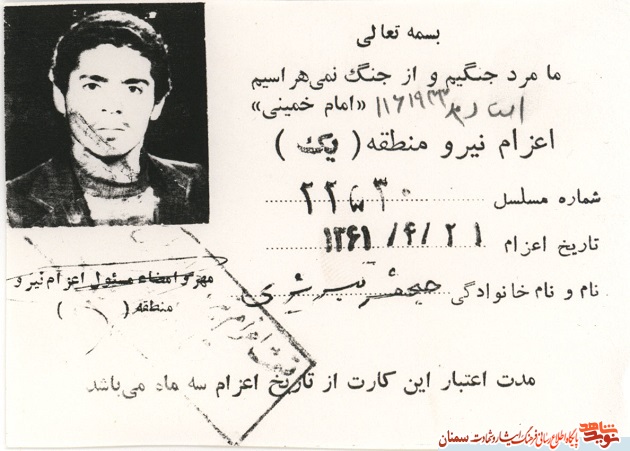 بسمه تعالی
ما مرد جنگیم و از جنگ نمی‌هراسیم
«امام خمینی»
اعزام نیرو منطقه ( یک )
شماره مسلسل
تاریخ اعزام ۱۳۶۱/۴/۲۱
نام و نام خانوادگی جعفر
مهر و امضاء مسئول اعزام نیرو
منطقه ( )
مدت اعتبار این کارت از تاریخ اعزام سه ماه می‌باشد
نوید شاهد
پایگاه اطلاع رسانی فرهنگ ایثار و شهادت سمنان